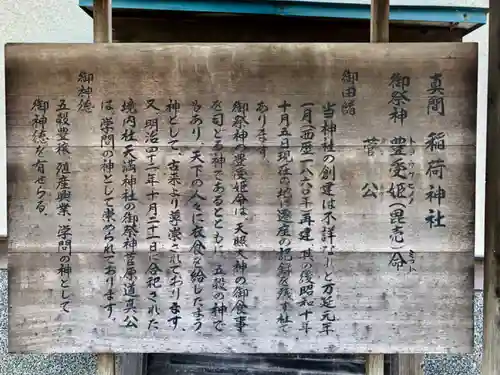 真間 稲荷神社
御祭神 豊受姫(毘売)命
トヨウケヒメノ
ミコト
菅公
御由緒
当神社の創建は不詳なりと万延元年
一月(西歴一八六〇年)再建 其の後昭和十年
十月五日現在の地に遷座の記録を残して
あります。
御祭神の豊受姫命は、天照大神の御食事
を司どる神であるとともに、五穀の神で
もあり、天下の人々に衣食を給したまう
神として、古来より尊崇されております。
又、明治四十二年十月二十一日に合祀された
境内社天満神社の御祭神菅原道真公
は、学問の神として崇められております。
御神徳
五穀豊穣、殖産興業、学問の神として
御神徳を有せらる。